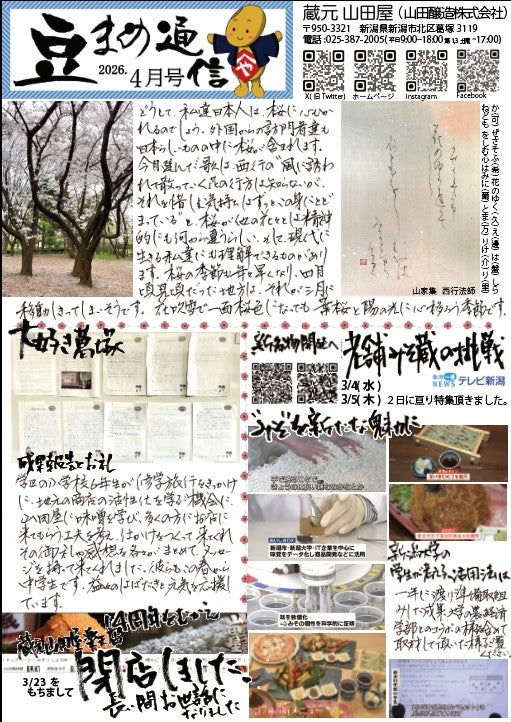 豆まめ通信
2026.4月号
蔵元 山田屋（山田醸造株式会社）
〒950-3321　新潟県新潟市北区葛塚 3119
電話：025-387-2005（平日9:00~18:00 ~17:00）
X(旧Twitter) ホームページ Instagram Facebook
どうして、私達日本人は、桜に心ひか
れるのでしょう。外国からの訪問者達も
日本らしいものの中に桜が含まれます。
今月選んだ歌は、西行の"風に誘われ
て散っていく花の行方は知らないが、
それを惜しむ気持ちはずっとこの身にとど
まっている"と、桜が他の花とは精神
的にも何か違うらしい。そして、現代に
生きる私達にも理解できるものがあり
ます。桜の季節も年々早くなり、四月
頃見頃だった地方は、それが三月に
移動しきってしまいそうです。花吹雪で一面桜色になっても葉桜と陽の光に心移ろう季節です。
か(可)ぜさそふ(希)花のゆく(久)え(遍)は(盤)しら
ねども をしむ心はみに(爾)とま(万)りけ(介)り(里)
山家集　西行法師
大好き葛塚
成果報告とお礼
学区の小学校6年生が修学旅行をきっかけ
に、地元の商店の活性化を学ぶ機会に、
山田屋に味噌を学び、多くの方にお店に
来てもらう工夫を考え、はたらきをつくって来てくれ
その御礼や感想を各々がまとめてメッセー
ジを持って来てくれました。彼らもこの春から
中学生です。益々のはばたきと元気を応援し
ています。
14周年をむかえ
3/23を
もちまして
閉店しました。
長い間お世話に
なりました
老舗みそ蔵の挑戦
3/4(水)
3/5(木) 2日に亘り特集頂きました。
NEWS テレビ新潟
みそを新たな魅力に
新潟市・新潟大学・IT企業を中心に
味覚をデータ化し商品開発などに活用
味を数値化
→みその個性を科学的に証明
学生が考える活用法は
一年に渡り準備取組
みした成果 大学の農 経済
学部とのコラボの様子含めて
取材して頂いた様子ご覧
ください